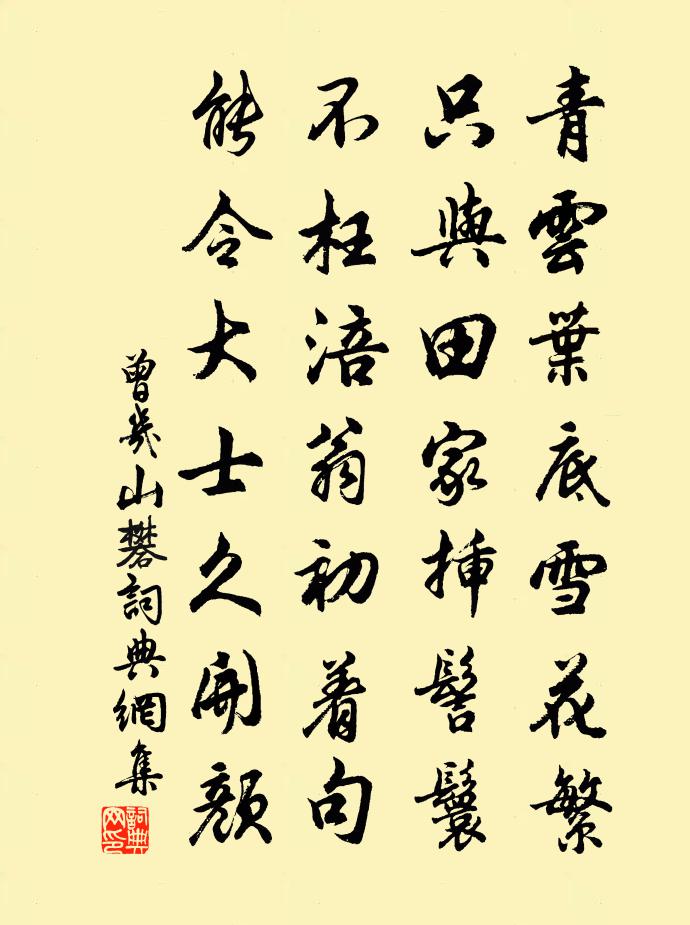 青雲葉底雪花繁
只與田家插髻鬟
不枉涪翁初着句
能令大士久開顏
曾幾山礬詞典網集
詞典網印